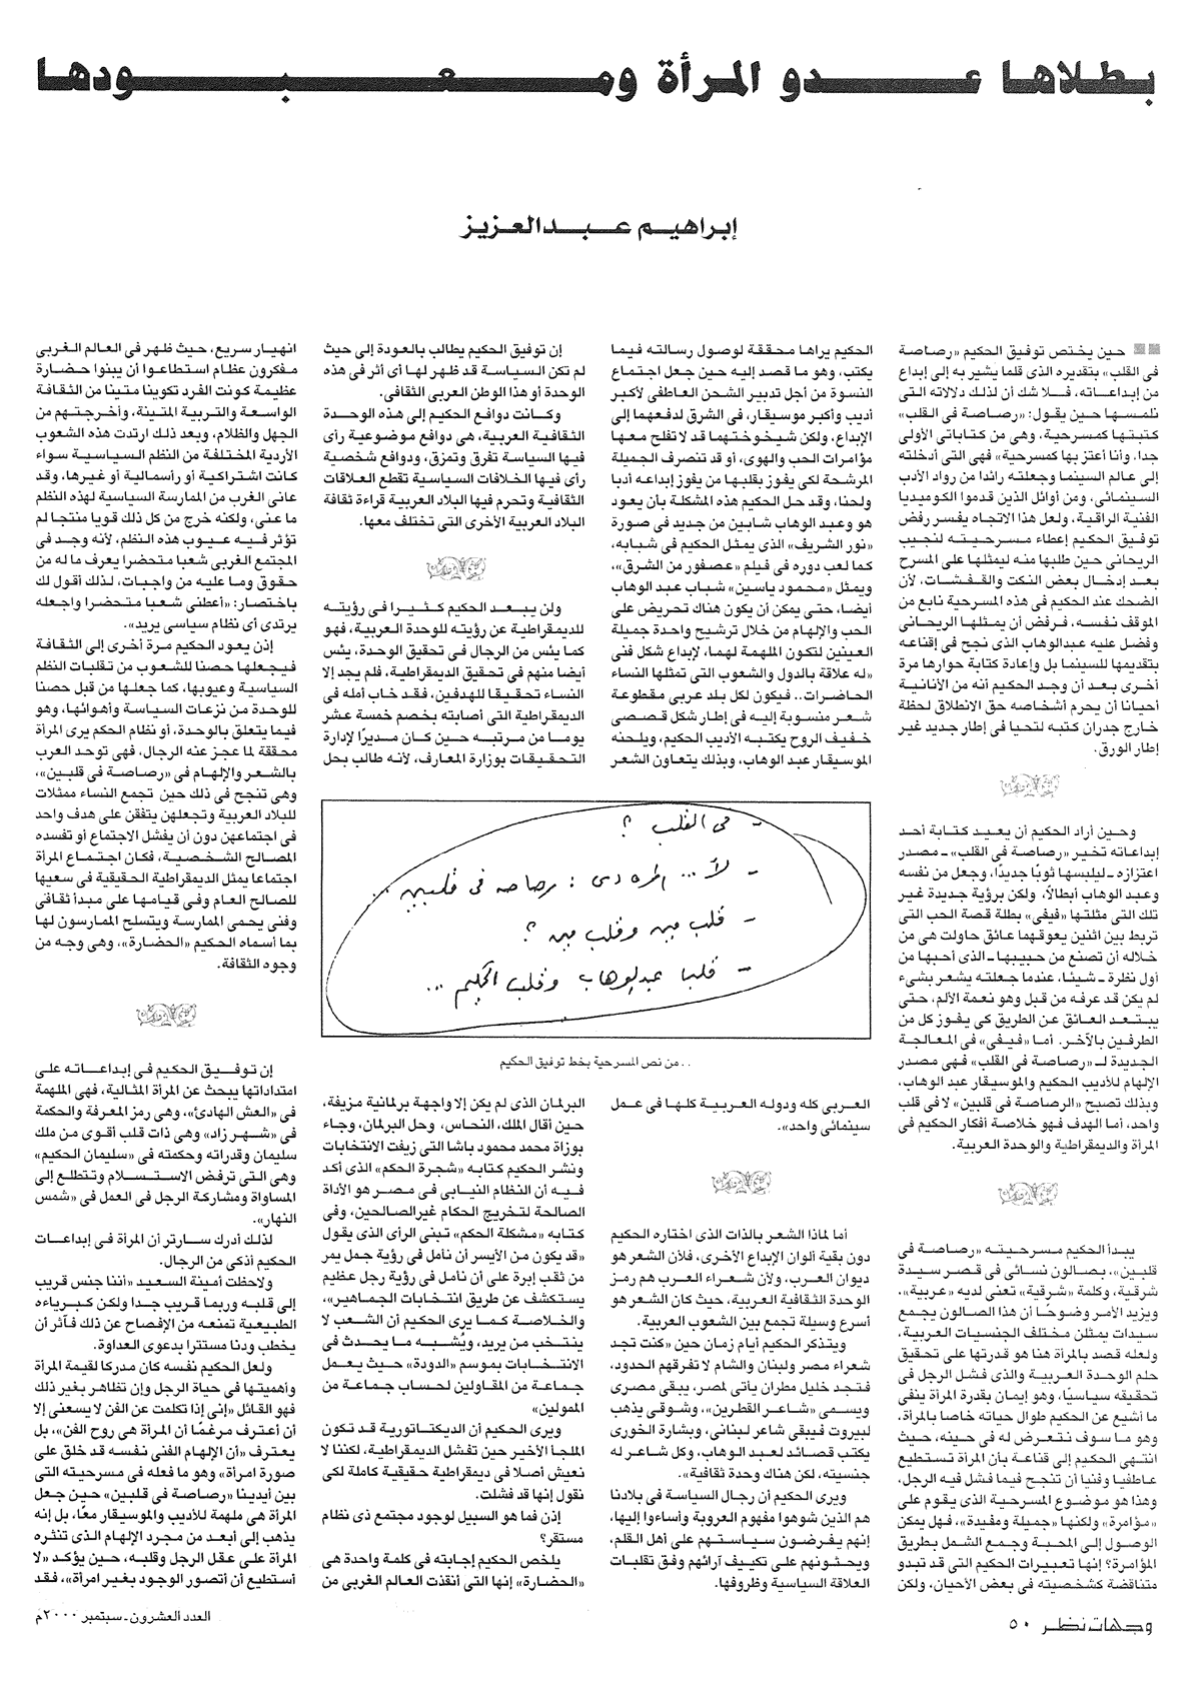 بطلاها عدو المرأة ومعبودها
إبراهيم عبدالعزيز
حين يختص توفيق الحكيم «رصاصة
فى القلب» بتقديره الذى قلما يشير به إلى إبداع
من إبداعاته، فلا شك أن لذلك دلالاته التى
نلمسها حين يقول: «رصاصة فى القلب»
كتبتها كمسرحية، وهى من كتاباتى الأولى
جدا، وأنا أعتز بها كمسرحية» فهى التى أدخلته
إلى عالم السينما وجعلته رائدا من رواد الأدب
السينمائى، ومن أوائل الذين قدموا الكوميديا
الفنية الراقية، ولعل هذا الاتجاه يفسر رفض
توفيق الحكيم إعطاء مسرحيته لنجيب
الريحانى حين طلبها منه ليمثلها على المسرح
بعد إدخال بعض النكت والقفشات، لأن
الضحك عند الحكيم فى هذه المسرحية نابع من
الموقف نفسه، فرفض أن يمثلها الريحانى
وفضل عليه عبدالوهاب الذى نجح فى إقناعه
بتقديمها للسينما بل وإعادة كتابة حوارها مرة
أخرى بعد أن وجد الحكيم أنه من الأنانية
أحيانا أن يحرم أشخاصه حق الانطلاق لحظة
خارج جدران كتبه لتحيا فى إطار جديد غير
إطار الورق.
وحين أراد الحكيم أن يعيد كتابة أحد
إبداعاته تخير «رصاصة فى القلب» ـ مصدر
اعتزازه ـ ليلبسها ثوبًا جديدًا، وجعل من نفسه
وعبد الوهاب أبطالاً، ولكن برؤية جديدة غير
تلك التى مثلتها «فيفى» بطلة قصة الحب التى
تربط بين اثنين يعوقهما عائق حاولت هى من
خلاله أن تصنع من حبيبها ـ الذى أحبها من
أول نظرة ـ شيئا، عندما جعلته يشعر بشىء
لم يكن قد عرفه من قبل وهو نعمة الألم، حتى
يبتعد العائق عن الطريق كى يفوز كل من
الطرفين بالآخر. أما «فيفى» فى المعالجة
الجديدة لـ «رصاصة فى القلب» فهى مصدر
الإلهام للأديب الحكيم والموسيقار عبد الوهاب،
وبذلك تصبح «الرصاصة فى قلبين» لا فى قلب
واحد، أما الهدف فهو خلاصة أفكار الحكيم فى
المرأة والديمقراطية والوحدة العربية.
يبدأ الحكيم مسرحيته «رصاصة فى
قلبين»، بصالون نسائى فى قصر سيدة
شرقية، وكلمة «شرقية» تعنى لديه «عربية»،
ويزيد الأمر وضوحًا أن هذا الصالون يجمع
سيدات يمثلن مختلف الجنسيات العربية،
ولعله قصد بالمرأة هنا هو قدرتها على تحقيق
حلم الوحدة العربية والذى فشل الرجل فى
تحقيقه سياسيًا، وهو إيمان بقدرة المرأة ينفى
ما أشيع عن الحكيم طوال حياته خاصا بالمرأة،
وهو ما سوف نتعرض له فى حينه، حيث
انتهى الحكيم إلى قناعة بأن المرأة تستطيع
عاطفيا وفنيا أن تنجح فيما فشل فيه الرجل،
وهذا هو موضوع المسرحية الذى يقوم على
«مؤامرة» ولكنها «جميلة ومفيدة»، فهل يمكن
الوصول إلى المحبة وجمع الشمل بطريق
المؤامرة؟ إنها تعبيرات الحكيم التى قد تبدو
متناقضة كشخصيته فى بعض الأحيان، ولكن
الحكيم يراها محققة لوصول رسالته فيما
يكتب، وهو ما قصد إليه حين جعل اجتماع
النسوة من أجل تدبير الشحن العاطفى لأكبر
أديب وأكبر موسيقار، فى الشرق لدفعهما إلى
الإبداع، ولكن شيخوختهما قد لا تفلح معها
مؤامرات الحب والهوى، أو قد تنصرف الجميلة
المرشحة لكى يفوز بقلبها من يفوز بإبداعه أدبا
ولحنا، وقد حل الحكيم هذه المشكلة بأن يعود
هو وعبد الوهاب شابين من جديد فى صورة
«نور الشريف» الذى يمثل الحكيم فى شبابه،
كما لعب دوره فى فيلم «عصفور من الشرق»،
ويمثل «محمود ياسين» شباب عبد الوهاب
أيضا، حتى يمكن أن يكون هناك تحريض على
الحب والإلهام من خلال ترشيح واحدة جميلة
العينين لتكون الملهمة لهما، لإبداع شكل فنى
«له علاقة بالدول والشعوب التى تمثلها النساء
الحاضرات.. فيكون لكل بلد عربى مقطوعة
شعر منسوبة إليه فى إطار شكل قصصى
خفيف الروح يكتبه الأديب الحكيم، ويلحنه
الموسيقار عبد الوهاب، وبذلك يتعاون الشعر
العربى كله ودوله العربية كلها فى عمل
سينمائى واحد».
أما لماذا الشعر بالذات الذى اختاره الحكيم
دون بقية ألوان الإبداع الأخرى، فلأن الشعر هو
ديوان العرب، ولأن شعراء العرب هم رمز
الوحدة الثقافية العربية، حيث كان الشعر هو
أسرع وسيلة تجمع بين الشعوب العربية.
ويتذكر الحكيم أيام زمان حين «كنت تجد
شعراء مصر ولبنان والشام لا تفرقهم الحدود،
فتجد خليل مطران يأتى لمصر، يبقى مصرى
ويسمى «شاعر القطرين»، وشوقى يذهب
لبيروت فيبقى شاعر لبنانى، وبشارة الخورى
يكتب قصائد لعبد الوهاب، وكل شاعر له
جنسيته، لكن هناك وحدة ثقافية».
ويرى الحكيم أن رجال السياسة فى بلادنا
هم الذين شوهوا مفهوم العروبة وأساءوا إليها،
إنهم يفرضون سياستهم على أهل القلم،
ويحثونهم على تكييف آرائهم وفق تقلبات
العلاقة السياسية وظروفها.
إن توفيق الحكيم يطالب بالعودة إلى حيث
لم تكن السياسة قد ظهر لها أى أثر فى هذه
الوحدة أو هذا الوطن العربى الثقافى.
وكانت دوافع الحكيم إلى هذه الوحدة
الثقافية العربية، هى دوافع موضوعية رأى
فيها السياسة تفرق وتمزق، ودوافع شخصية
رأى فيها الخلافات السياسية تقطع العلاقات
الثقافية وتحرم فيها البلاد العربية قراءة ثقافة
البلاد العربية الأخرى التى تختلف معها.
ولن يبعد الحكيم كثيرا فى رؤيته
للديمقراطية عن رؤيته للوحدة العربية، فهو
كما يئس من الرجال فى تحقيق الوحدة، يئس
أيضا منهم فى تحقيق الديمقراطية، فلم يجد إلا
النساء تحقيقا للهدفين، فقد خاب أمله فى
الديمقراطية التى أصابته بخصم خمسة عشر
يوما من مرتبه حين كان مديرًا لإدارة
التحقيقات بوزارة المعارف، لأنه طالب بحل
- فى القلب ؟
- لأ... المره دى : رصاصه فى قلبين ..
- قلب مين وقلب مين ؟
- قلب عبدالوهاب وقلب الحكيم ...
..من نص المسرحية بخط توفيق الحكيم
البرلمان الذى لم يكن إلا واجهة برلمانية مزيفة،
حين أقال الملك، النحاس، وحل البرلمان، وجاء
بوزاة محمد محمود باشا التى زيفت الانتخابات
ونشر الحكيم كتابه «شجرة الحكم» الذى أكد
فيه أن النظام النيابى فى مصر هو الأداة
الصالحة لتخريج الحكام غيرالصالحين، وفى
كتابه «مشكلة الحكم» تبنى الرأى الذى يقول
«قد يكون من الأيسر أن نأمل فى رؤية جمل يمر
من ثقب إبرة على أن نأمل فى رؤية رجل عظيم
يستكشف عن طريق انتخابات الجماهير»،
والخلاصة كما يرى الحكيم أن الشعب لا
ينتخب من يريد، ويُشبه ما يحدث فى
الانتخابات بموسم «الدودة» حيث يعمل
جماعة من المقاولين لحساب جماعة من
الممولين»
ويرى الحكيم أن الديكتاتورية قد تكون
الملجأ الأخير حين تفشل الديمقراطية، لكننا لا
نعيش أصلا فى ديمقراطية حقيقية كاملة لكى
نقول إنها قد فشلت.
إذن فما هو السبيل لوجود مجتمع ذى نظام
مستقر؟
يلخص الحكيم إجابته فى كلمة واحدة هى
«الحضارة» إنها التى أنقذت العالم الغربى من
انهيار سريع، حيث ظهر فى العالم الغربى
مفكرون عظام استطاعوا أن يبنوا حضارة
عظيمة كونت الفرد تكوينا متينا من الثقافة
الواسعة والتربية المتينة، وأخرجتهم من
الجهل والظلام، وبعد ذلك ارتدت هذه الشعوب
الأردية المختلفة من النظم السياسية سواء
كانت اشتراكية أو رأسمالية أو غيرها، وقد
عانى الغرب من الممارسة السياسية لهذه النظم
ما عنى، ولكنه خرج من كل ذلك قويا منتجا لم
تؤثر فيه عيوب هذه النظم، لأنه وجد فى
المجتمع الغربى شعبا متحضرا يعرف ما له من
حقوق وما عليه من واجبات، لذلك أقول لك
باختصار: «أعطنى شعبا متحضرا واجعله
يرتدى أى نظام سياسى يريد».
إذن يعود الحكيم مرة أخرى إلى الثقافة
فيجعلها حصنا للشعوب من تقلبات النظم
السياسية وعيوبها، كما جعلها من قبل حصنا
للوحدة من نزعات السياسة وأهوائها، وهو
فيما يتعلق بالوحدة، أو نظام الحكم يرى المرأة
محققة لما عجز عنه الرجال، فهى توحد العرب
بالشعر والإلهام فى «رصاصة فى قلبين»،
وهى تنجح فى ذلك حين تجمع النساء ممثلات
للبلاد العربية وتجعلهن يتفقن على هدف واحد
فى اجتماعهن دون أن يفشل الاجتماع أو تفسده
المصالح الشخصية، فكان اجتماع المرأة
اجتماعا يمثل الديمقراطية الحقيقية فى سعيها
للصالح العام وفى قيامها على مبدأ ثقافى
وفنى يحمى الممارسة ويتسلح الممارسون لها
بما أسماه الحكيم «الحضارة»، وهى وجه من
وجوه الثقافة.
إن توفيق الحكيم فى إبداعاته على
امتداداتها يبحث عن المرأة المثالية، فهى الملهمة
فى «العش الهادئ»، وهى رمز المعرفة والحكمة
فى «شهر زاد» وهى ذات قلب أقوى من ملك
سليمان وقدراته وحكمته فى «سليمان الحكيم»
وهى التى ترفض الاستسلام وتتطلع إلى
المساواة ومشاركة الرجل فى العمل فى «شمس
النهار».
لذلك أدرك سارتر أن المرأة فى إبداعات
الحكيم أذكى من الرجال.
ولاحظت أمينة السعيد «أننا جنس قريب
إلى قلبه وربما قريب جدا ولكن كبرياءه
الطبيعية تمنعه من الإفصاح عن ذلك فآثر أن
يخطب ودنا مستترا بدعوى العداوة.
ولعل الحكيم نفسه كان مدركا لقيمة المرأة
وأهميتها فى حياة الرجل وإن تظاهر بغير ذلك
فهو القائل «إنى إذا تكلمت عن الفن لا يسعنى إلا
أن أعترف مرغمًا أن المرأة هى روح الفن»، بل
يعترف «أن الإلهام الفنى نفسه قد خلق على
صورة امرأة» وهو ما فعله فى مسرحيته التى
بين أيدينا «رصاصة فى قلبين» حين جعل
المرأة هى ملهمة للأديب والموسيقار معًا، بل إنه
يذهب إلى أبعد من مجرد الإلهام الذى تنثره
المرأة على عقل الرجل وقلبه، حين يؤكد «لا
أستطيع أن أتصور الوجود بغير امرأة»، فقد
وجهات نظر ٥٠
العدد العشرون ـ سبتمبر ٢٠٠٠م